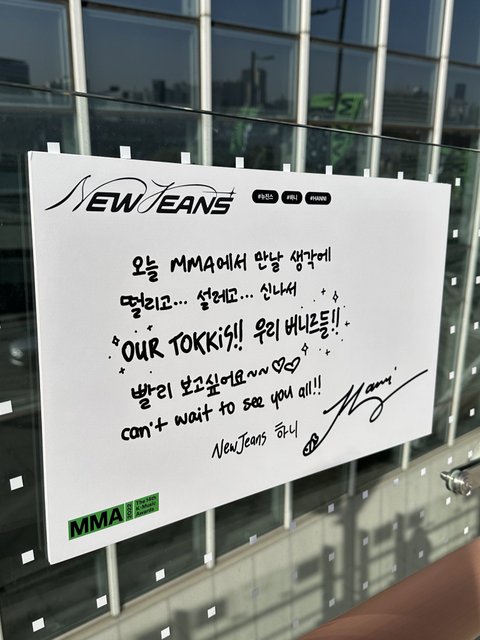 NEWJEANS #뉴진스 #하니 #HANNI
오늘 MMA에서 만날 생각에
떨리고... 설레고... 신나서
OUR TOKKIS!! 우리 버니즈들!!
빨리 보고싶어요~~♡♡
can't wait to see you all!!
NewJeans 하니
Hanni
MMA 2022 The 14th K-Music Awards